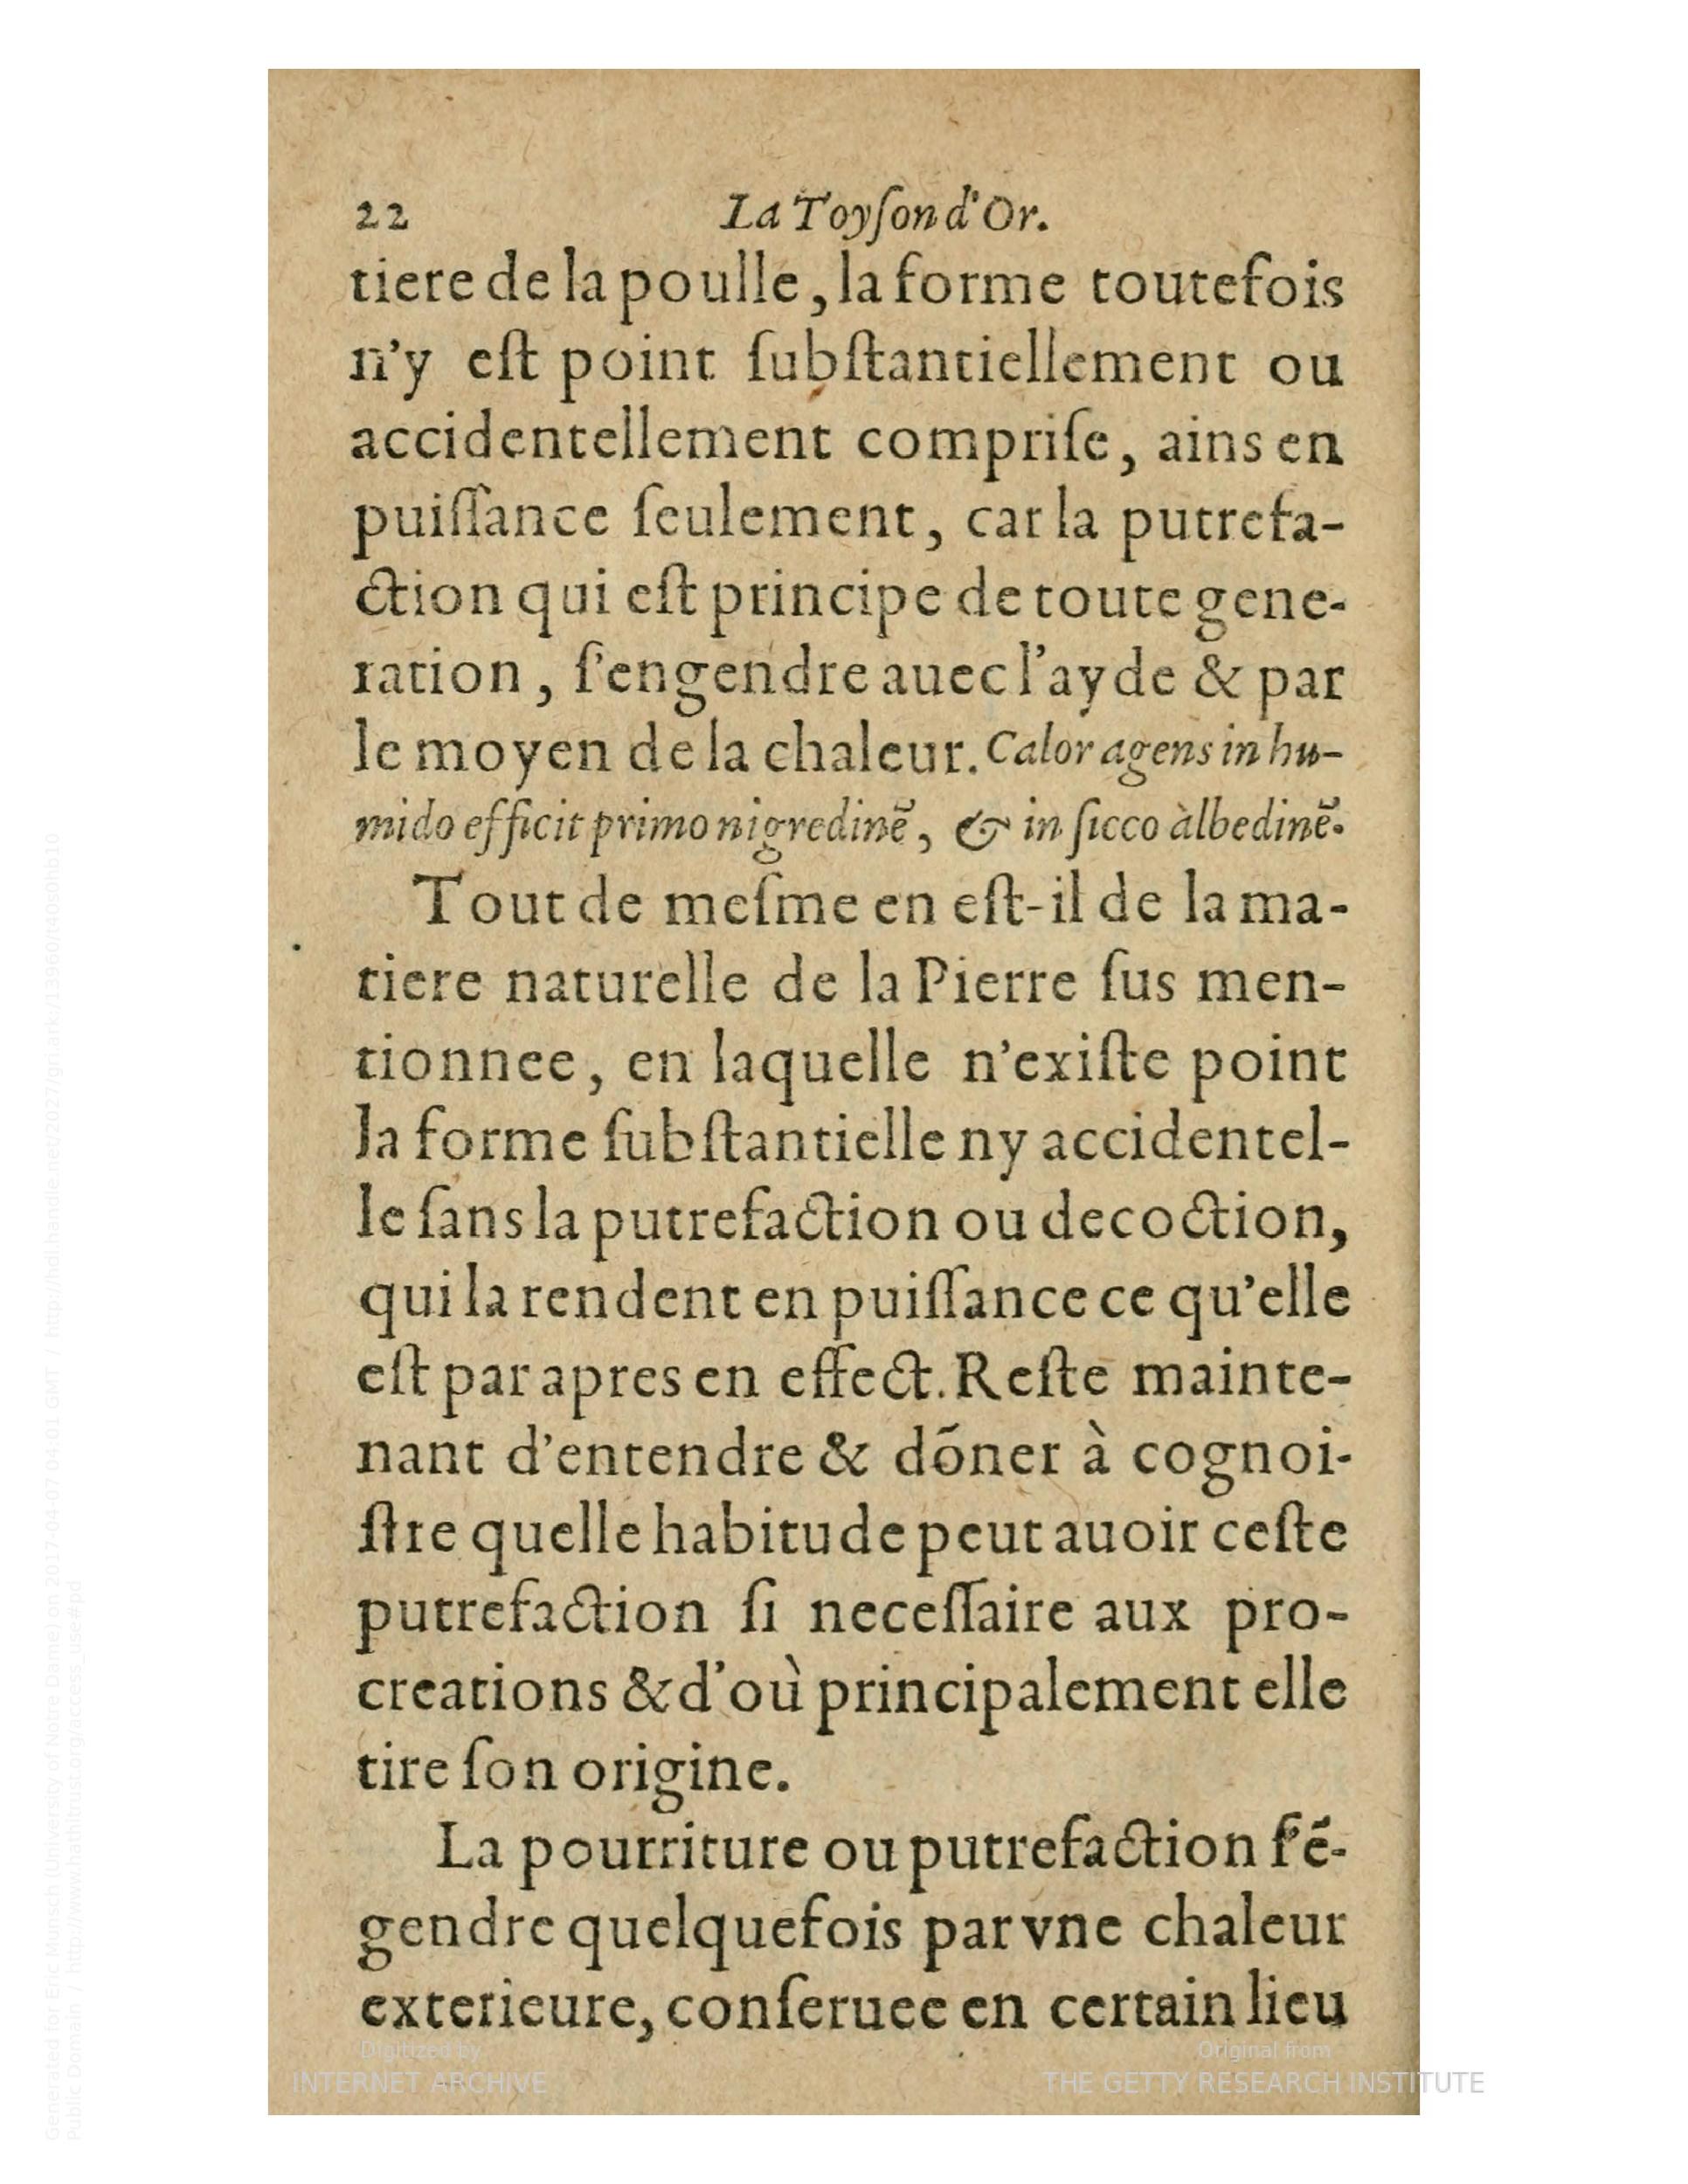 22 La Toyſon d'Or.
tiere de la poulle, la forme toutefois
n'y eſt point ſubſtantiellement ou
accidentellement compriſe, ains en
puiſſance ſeulement, car la putrefa-
ction qui eſt principe de toute gene-
ration, ſ'engendre auec l'ayde & par
le moyen de la chaleur. Calor agens in hu-
mido efficit primo nigredinē, & in ſicco àlbedinē.
Tout de meſme en eſt-il de la ma-
tiere naturelle de la Pierre ſus men-
tionnee, en laquelle n'exiſte point
la forme ſubſtantielle ny accidentel-
le ſans la putrefaction ou decoction,
qui la rendent en puiſſance ce qu'elle
eſt par apres en effect. Reſte mainte-
nant d'entendre & dōner à cognoi-
ſtre quelle habitude peut auoir ceſte
putrefaction ſi neceſſaire aux pro-
creations & d'où principalement elle
tire ſon origine.
La pourriture ou putrefaction ſ'ē-
gendre quelquefois par vne chaleur
exterieure, conſeruee en certain lieu
Digitized by
INTERNET ARCHIVE
Original from
THE GETTY RESEARCH INSTITUTE
Generated for Eric Munsch (University of Notre Dame) on 2017-04-07 04:01 GMT / http://hdl.handle.net/2027/gri.ark:/13960/t40s0hb10
Public Domain / http://www.hathitrust.org/access_use#pd